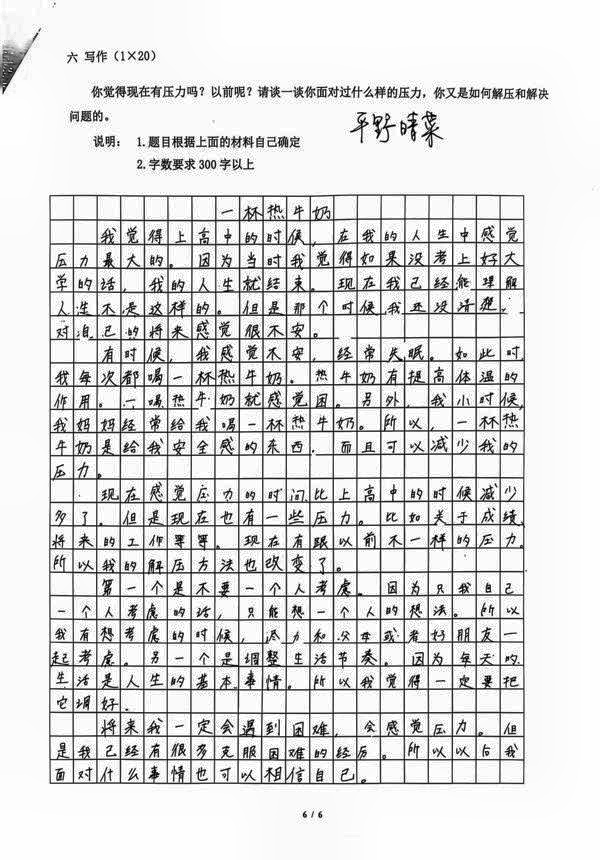 六 写作（1×20）
你觉得现在有压力吗？以前呢？请谈一谈你面对过什么样的压力，你又是如何解压和解决
问题的。
平野晴菜
说明： 1.题目根据上面的材料自己确定
2.字数要求 300 字以上
一杯热牛奶
我觉得上高中的时候，在我的人生中感觉
压力最大的。因为当时我觉得如果没考上好大
学的话，我的人生就结束。现在我已经能理解
人生不是这样的。但是那个时候我还没清楚，
对自己的将来感觉很不安。
有时候，我感觉不安，经常失眠。如此时，
我每次都喝一杯热牛奶。热牛奶有提高体温的
作用。一喝热牛奶就感觉困。另外，我小时候，
我妈妈经常给我喝一杯热牛奶。所以，一杯热
牛奶是给我安全感的东西，而且可以减少我的
压力。
现在感觉压力的时间比上高中的时候减少
多了。但是现在也有一些压力。比如关于成绩，
将来的工作等等。现在有跟以前不一样的压力，
所以我的解压方法也改变了。
第一个是不要一个人考虑。因为只我自己
一个人考虑的话，只能想一个人的想法。所以
我有想考虑的时候，尽力和父母或者好朋友一
起考虑。另一个是调整生活节奏。因为每天的
生活是人生的基本事情。所以我觉得一定要把
它调好。
将来我一定会遇到困难，会感觉压力。但
是我已经有很多克服困难的经历。所以以后我
面对什么事情也可以相信自己。
6 / 6